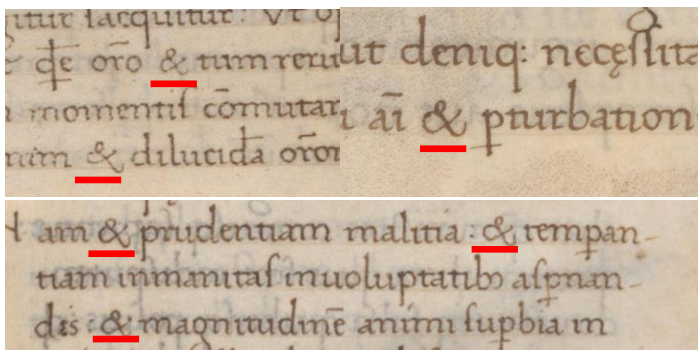 q̄e orō & tum reru
momentiſ cōmutar
& dilucida orōr
ut deniq: necęſſita
aī & ꝑturbation
am & prudentiam malitia : & temꝑan-
tiam inmanitaſ inuoluptatibꝫ aſꝑnan-
dis : & magnitudinē animi ſuꝑbia in